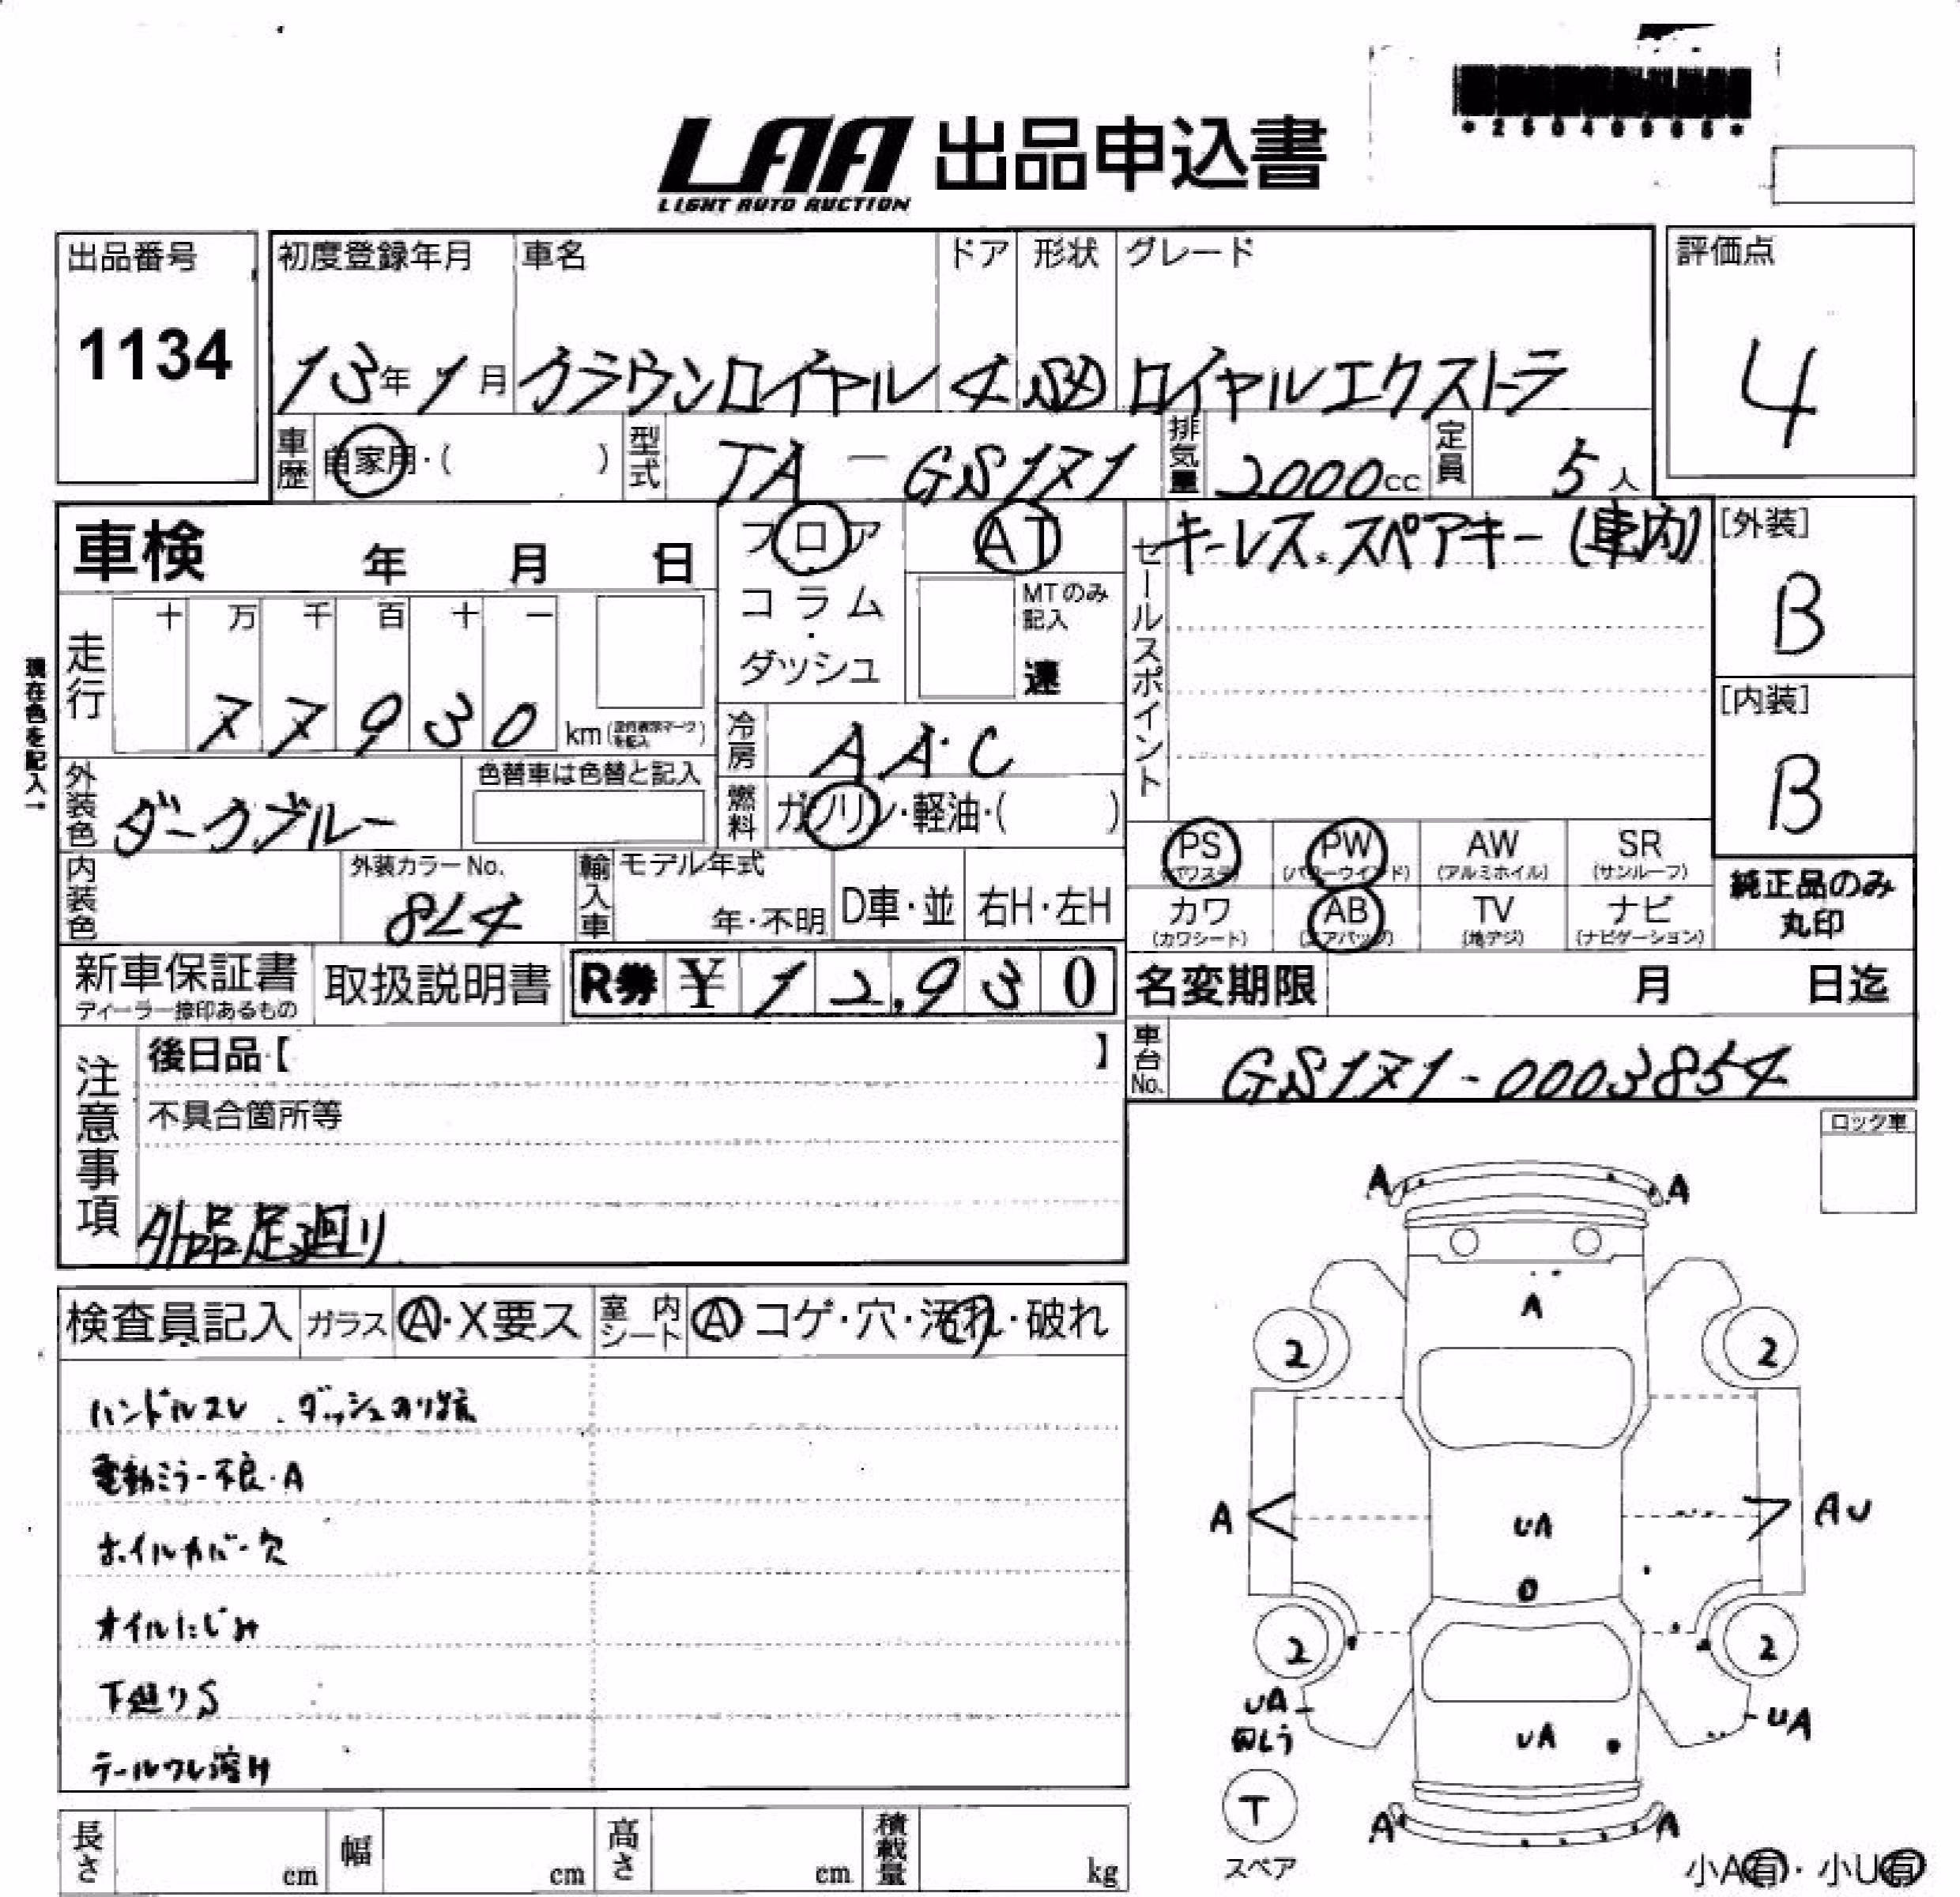 *25040985*
LAA 出品申込書
LIGHT AUTO AUCTION
出品番号
1134
初度登録年月 車名 ドア 形状 グレード
13年1月 クラウンロイヤル 4 SD ロイヤルエクストラ
評価点
4
車歴 自家用・( ) 型式 TA-GS171 排気量 2000cc 定員 5人
車検 年 月 日
フロア
コラム
・
ダッシュ
AT
MTのみ記入
速
セールスポイント
キーレス。スペアキー(車内)
[外装]
B
[内装]
B
現在色を記入→
走行
十 万 千 百 十 一
7 7 9 3 0 km
冷房 AAC
外装色 ダークブルー
色替車は色替と記入
燃料 ガソリン・軽油・( )
PS (パワステ) PW (パワーウインド) AW (アルミホイル) SR (サンルーフ)
カワ (カワシート) AB (エアバッグ) TV (地デジ) ナビ (ナビゲーション)
純正品のみ
丸印
内装色
外装カラーNo.
8L4
輸入車 モデル年式
年・不明 D車・並 右H・左H
新車保証書
ディーラー捺印あるもの
取扱説明書
R券 ¥12,930
名変期限 月 日迄
車台No. GS171-0003854
注意事項
後日品【 】
不具合箇所等
外品足廻り
検査員記入 ガラス A・X要ス 室内シート A コゲ・穴・汚れ・破れ
ハンドルスレ、ダッシュのり跡
電動ミラー不良・A
ホイルカバー欠
オイルにじみ
下廻りS
テールワレ溶け
ロック車
A A
A
2 2
A UA AU
0
2 2
UA UA UA
T
スペア
A A
小A有・小U有
長さ cm 幅 cm 高さ cm 積載量 kg